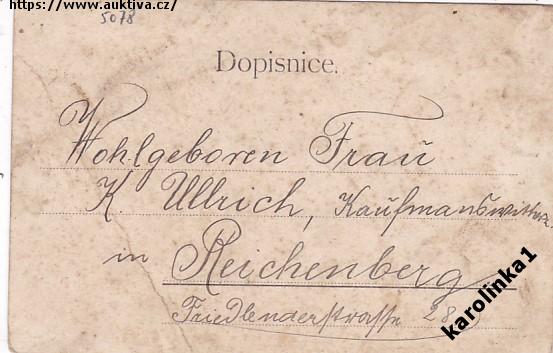 https://www.auktiva.cz/
5078
Dopisnice.
Wohlgeboren Frau
K. Ullrich, Kaufmanswittwe
in
Reichenberg
Friedlenderstrasse 28
karolinka1